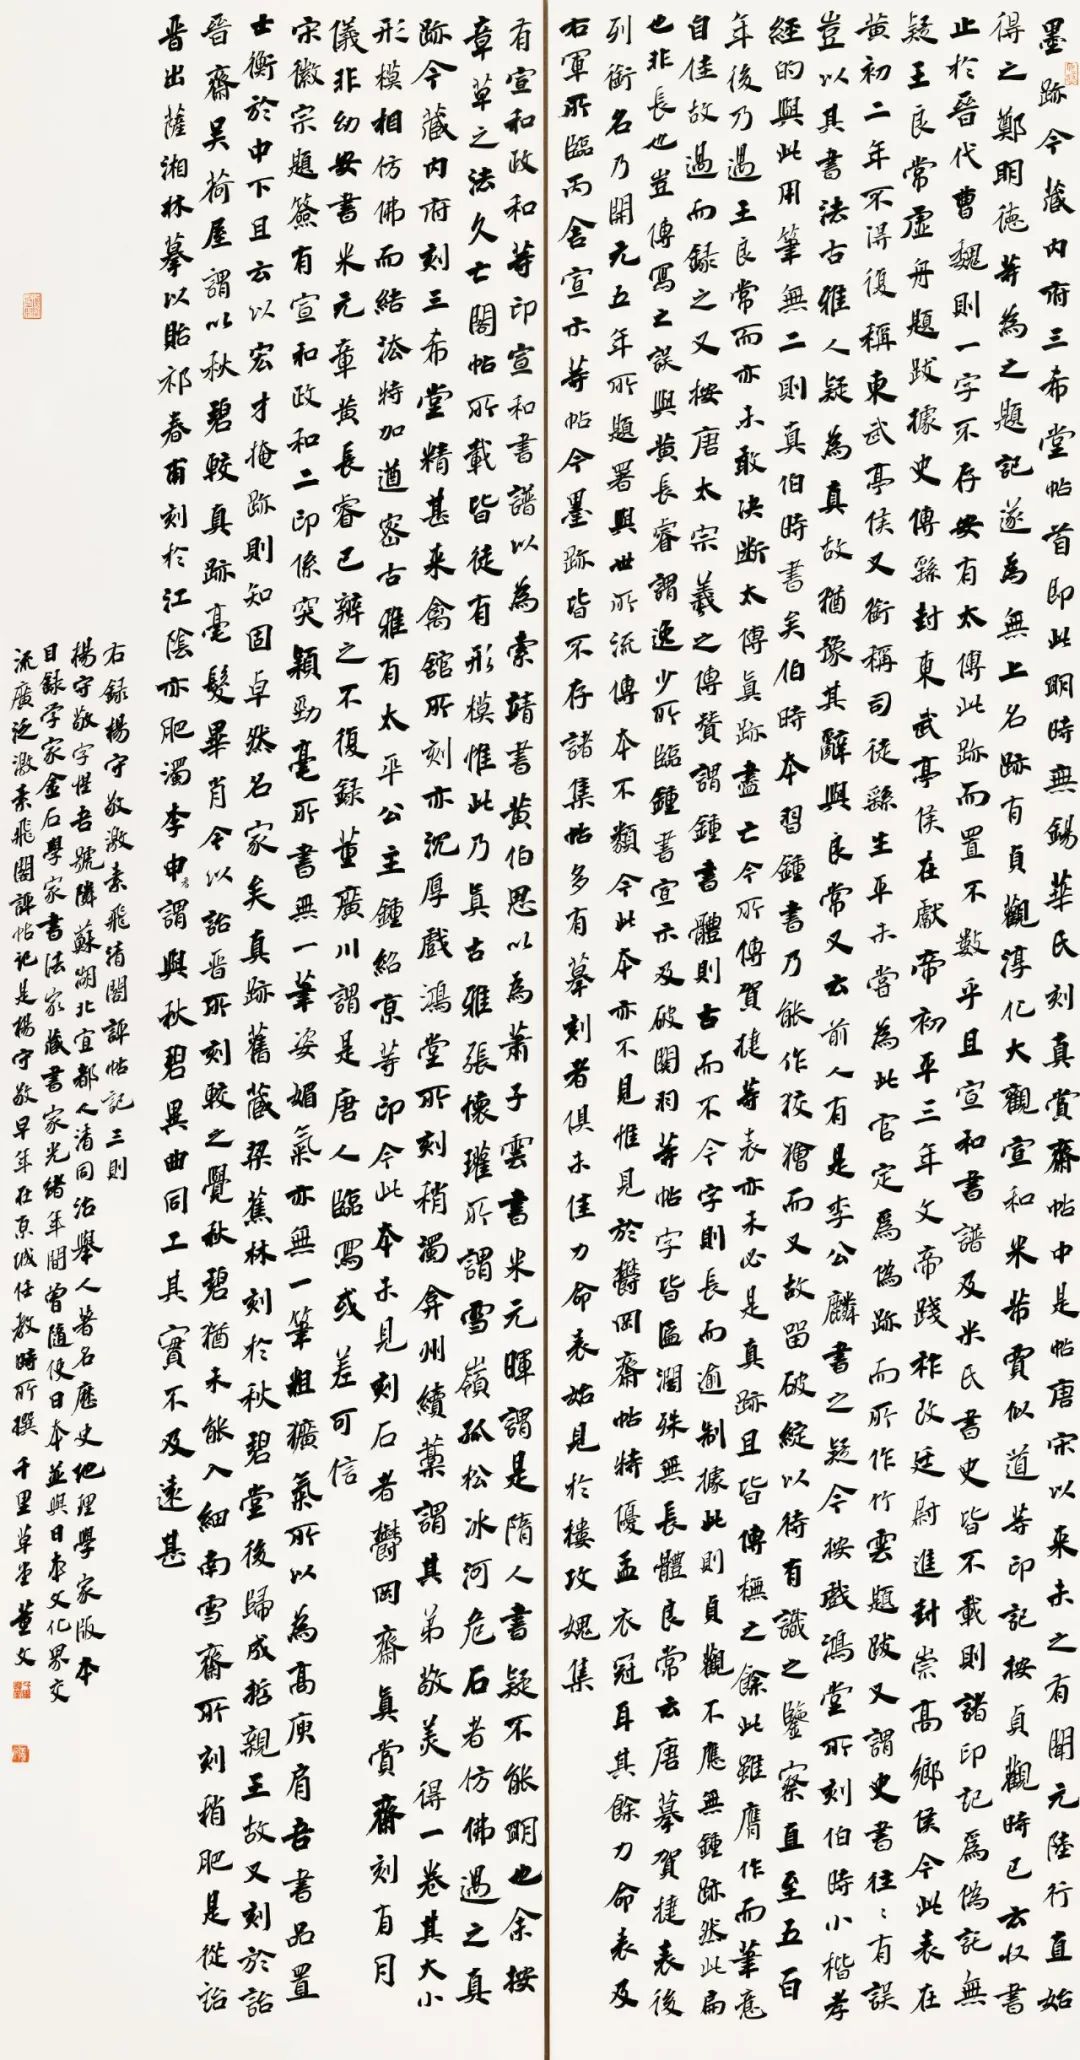 墨跡今藏內府三希堂帖首即此明時無錫華氏刻真賞齋帖中是帖唐宋以來未之有聞元陸行直始
得之鄭明德等為之題記遂為無上名跡有貞觀淳化大觀宣和米芾賈似道等印記按貞觀時已云收書
止於晉代曹魏則一字不存安有太傅此跡而置不數乎且宣和書譜及米氏書史皆不載則諸印記為偽託無
疑王良常虛舟題跋據史傳繇封東武亭侯在獻帝初平三年文帝踐祚改廷尉進封崇高鄉侯今此表在
黃初二年不得復稱東武亭侯又銜稱司徒繇生平未嘗為此官定為偽跡而所作竹雲題跋又謂史書往往有誤
豈以其書法古雅人疑為真故猶豫其辭與良常又云前人有是李公麟書之疑今按戲鴻堂所刻伯時小楷孝
經的與此用筆無二則真伯時書矣伯時本習鍾書乃能作狡獪而又故留破綻以待有識之鑒察直至五百
年後乃遇王良常而亦未敢決斷太傅真跡盡亡今所傳賀捷等表亦未必是真跡且皆傳橅之餘此雖贗作而筆意
自佳故過而錄之又按唐太宗羲之傳贊謂鍾書體則古而不今字則長而逾制據此則貞觀不應無鍾跡然此扁
也非長也豈傳寫之誤與黃長睿謂逸少所臨鍾書宣示及破關羽等帖字皆匾濶殊無長體良常云唐摹賀捷表後
列銜名乃開元五年所題署與世所流傳本不類今此本亦不見惟見於鬱岡齋帖特優孟衣冠耳其餘力命表及
右軍所臨丙舍宣示等帖今墨跡皆不存諸集帖多有摹刻者俱未佳力命表始見於樓攻媿集
有宣和政和等印宣和書譜以為索靖書黃伯思以為蕭子雲書米元暉謂是隋人書疑不能明也余按
章草之法久亡閣帖所載皆徒有形模惟此乃真古雅張懷瓘所謂雪嶺孤松冰河危石者仿佛遇之真
跡今藏內府刻三希堂精甚來禽館所刻亦沉厚戲鴻堂所刻稍濁弇州續藁謂其弟敬美得一卷其大小
形模相仿佛而結法特加遒密古雅有太平公主鍾紹京等印今此本未見刻石者鬱岡齋真賞齋刻有月
儀非幼安書米元章黃長睿已辨之不復錄董廣川謂是唐人臨寫或差可信
宋徽宗題簽有宣和政和二印係突穎勁毫所書無一筆姿媚氣亦無一筆粗獷氣所以為高庾肩吾書品置
士衡於中下且云以宏才掩跡則知固卓然名家矣真跡舊藏梁蕉林刻於秋碧堂後歸成哲親王故又刻於詒
晉齋吳荷屋謂以秋碧較真跡毫髮畢肖今以詒晉所刻較之覺秋碧猶未能入細南雪齋所刻稍肥是從詒
晉出薩湘林摹以貽祁春甫刻於江陰亦肥濁李申耆謂與秋碧異曲同工其實不及遠甚
右錄楊守敬激素飛清閣評帖記三則
楊守敬字惺吾號鄰蘇湖北宜都人清同治舉人著名歷史地理學家版本
目錄學家金石學家書法家藏書家光緒年間曾隨使日本並與日本文化界交
流廣泛激素飛閣評帖記是楊守敬早年在京城任教時所撰千里草堂董文